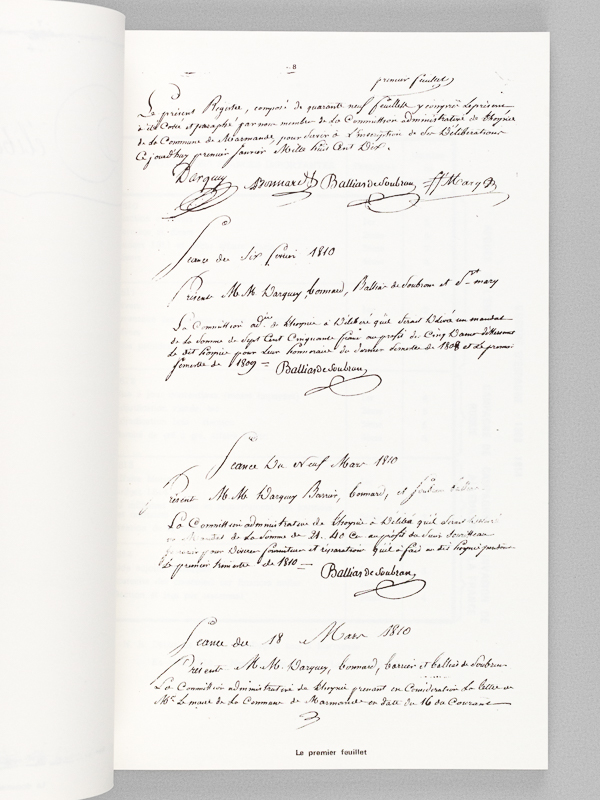 8
premier feuillet
Le présent Registre, composé de quarante neuf feuillets y compris le présent
a été Cotté et paraphé par nous membres de la Commission administrative de L'hospice
de la Commune de Marmande, pour servir à L'inscription de Ses Délibérations
Ce jourd'huy premier Janvier Mille huit Cent Dix.
Darquey Bonnard Balliasde Soubran St Mary
Séance du Six février 1810
Présent M.M Darquey, bonnard, Ballias de Soubran et St mary
La Commission ad.ive de L'hospice a Délibéré qu'il Serait Délivré un mandat
de la Somme de Sept Cent Cinquante francs au profit de Cinq Dames
de dit hospice pour Leur honoraire du dernier Semestre de 1808 et Le premier
Semestre de 1809 Balliasde Soubran
Séance Du Neuf Mars 1810
Présent M.M Darquey Barrier, bonnard, et Soubran
La Commission administrative de L'hospice a Délibéré qu'il Serait
un Mandat de la Somme de 21. 40 Ces au profit du Sieur
pour Diverses fournitures et réparations qu'il a fait au dit hospice pendant
Le premier trimestre de 1810 Balliasde Soubran
Séance du 18 Mars 1810
Présents M.M. Darquey, bonnard, barrier et ballias de Soubran
La Commission administrative de L'hospice prenant en Considération La lettre de
Mr. Le maire de La Commune de Marmande en datte du 16 du Courant
Le premier feuillet